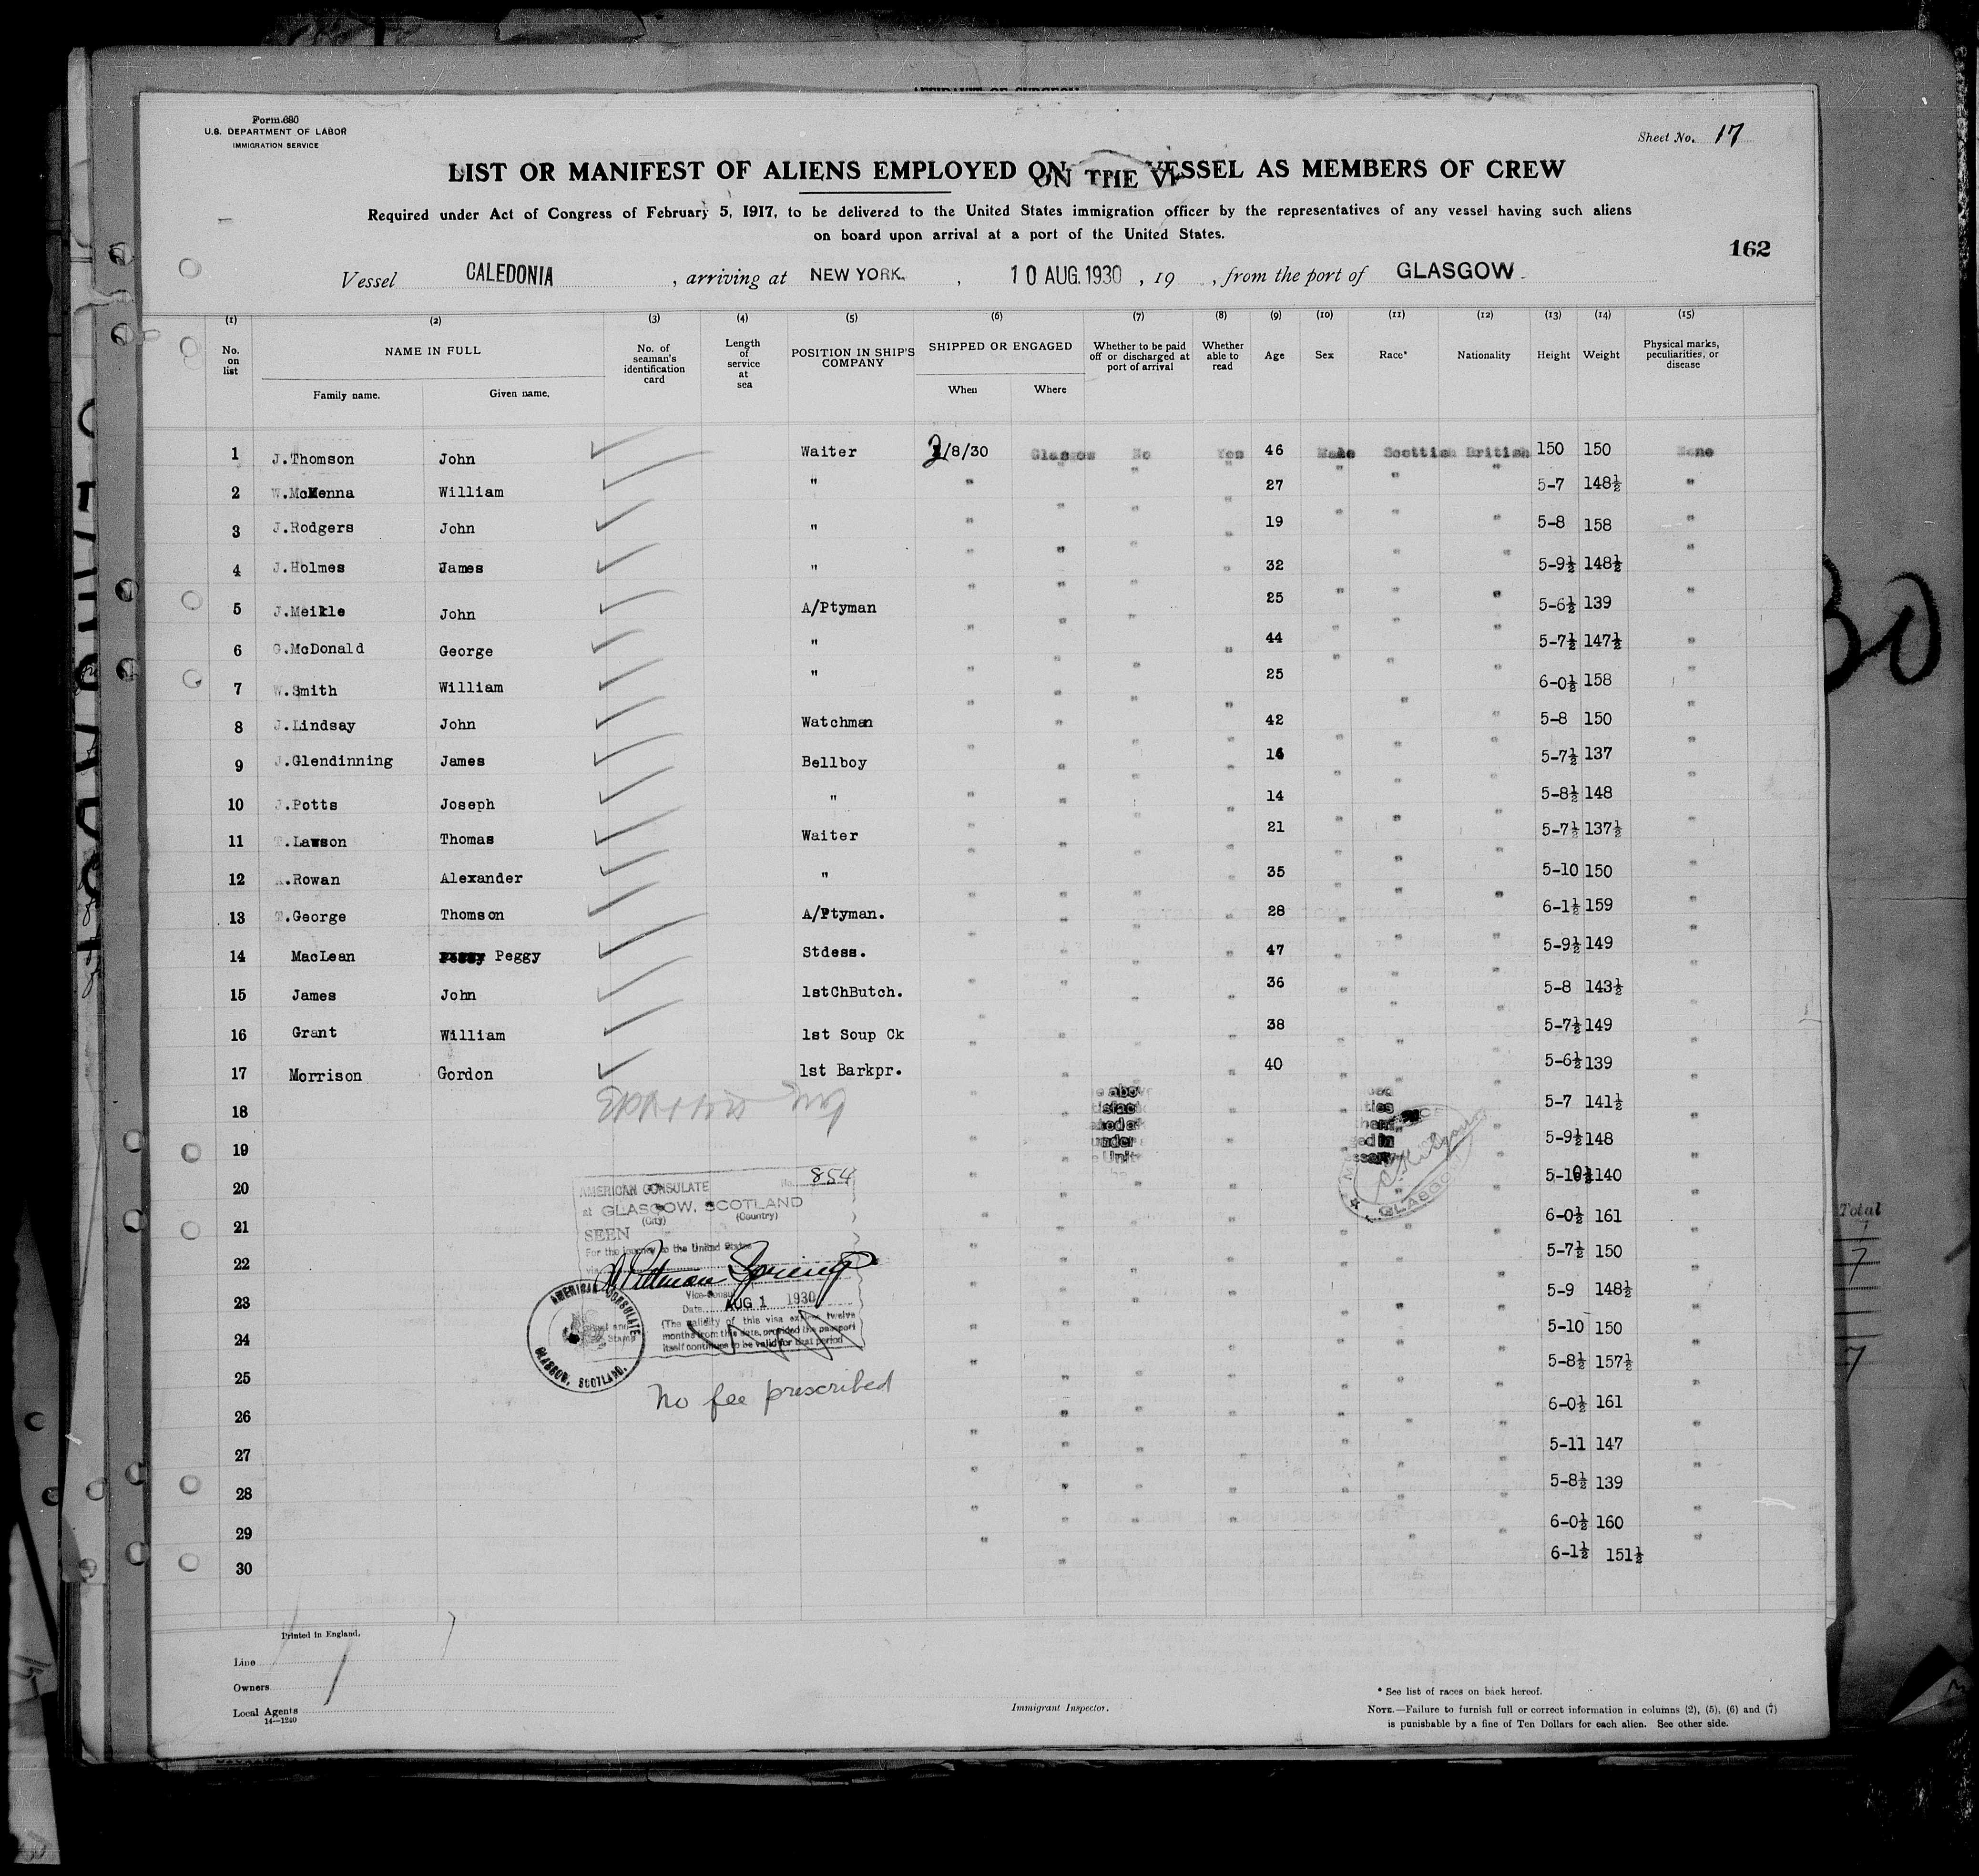 Form 680
U.S. DEPARTMENT OF LABOR
IMMIGRATION SERVICE
Sheet No. 17
LIST OR MANIFEST OF ALIENS EMPLOYED ON THE VESSEL AS MEMBERS OF CREW
Required under Act of Congress of February 5, 1917, to be delivered to the United States immigration officer by the representatives of any vessel having such aliens
on board upon arrival at a port of the United States.
162
Vessel CALEDONIA, arriving at NEW YORK, 10 AUG. 1930, 19 , from the port of GLASGOW
(1) (2) (3) (4) (5) (6) (7) (8) (9) (10) (11) (12) (13) (14) (15)
No. on list
NAME IN FULL
Family name. Given name.
No. of seaman's identification card
Length of service at sea
POSITION IN SHIP'S COMPANY
SHIPPED OR ENGAGED
When Where
Whether to be paid off or discharged at port of arrival
Whether able to read
Age Sex Race* Nationality Height Weight
Physical marks, peculiarities, or disease
1 J.Thomson John Waiter 2/8/30 Glasgow No Yes 46 Male Scottish British 150 150 None
2 W.McKenna William " " " " " 27 " " " 5-7 148½ "
3 J.Rodgers John " " " " " 19 " " " 5-8 158 "
4 J.Holmes James " " " " " 32 " " 5-9½ 148½ "
5 J.Meikle John A/Ptyman " " " 25 " " " 5-6½ 139 "
6 G.McDonald George " " " " " 44 " " " 5-7½ 147½ "
7 W.Smith William " " " " 25 " " " 6-0½ 158 "
8 J.Lindsay John Watchman " " " " 42 " " 5-8 150 "
9 J.Glendinning James Bellboy " " " " 16 " " " 5-7½ 137 "
10 J.Potts Joseph " " " " " 14 " " " 5-8½ 148 "
11 T.Lawson Thomas Waiter " " " " 21 " " " 5-7½ 137½ "
12 A.Rowan Alexander " " " " " 35 " " " 5-10 150 "
13 T.George Thomson A/Ptyman. " " " " 28 " " " 6-1½ 159 "
14 MacLean Peggy Stdess. " " " " 47 " " " 5-9½ 149 "
15 James John 1stChButch. " " " " 36 " " " 5-8 143½ "
16 Grant William 1st Soup Ck " " " " 38 " " " 5-7½ 149 "
17 Morrison Gordon 1st Barkpr. " " " " 40 " " " 5-6½ 139 "
18 5-7 141½
19 5-9½ 148
20 140
21 6-0½ 161
22 5-7½ 150
23 5-9 148½
24 5-10 150
25 5-8½ 157½
26 6-0½ 161
27 5-11 147
28 5-8½ 139
29 6-0½ 160
30 6-1½ 151½
AMERICAN CONSULATE No. 854
at GLASGOW, SCOTLAND
(City) (Country)
SEEN
For the journey to the United States
via
Vice-Consul
Date AUG 1 1930
(The validity of this visa expires twelve
months from this date, provided the passport
itself continues to be valid for that period
AMERICAN CONSULATE
GLASGOW, SCOTLAND.
GLASGOW
No fee prescribed
Printed in England.
Line
Owners
Local Agents
14—1240
Immigrant Inspector.
* See list of races on back hereof.
NOTE.—Failure to furnish full or correct information in columns (2), (5), (6) and (7)
is punishable by a fine of Ten Dollars for each alien. See other side.
Total
7
7
30